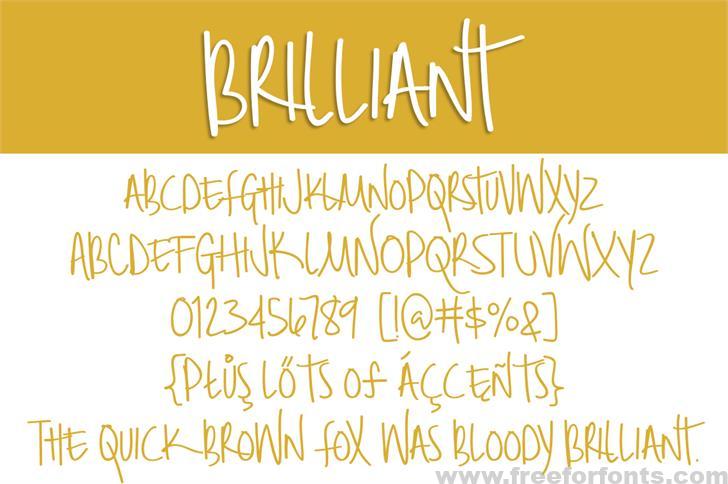 BRILLIANT
ABCDEfGHIJKLMNOPQRSTUVWXYZ
ABCDEFGHIJKLMNOPQRSTUVWXYZ
0123456789 [!@#$%&]
{PŁÚŞ LŐTS Of ÁÇÇĘÑTŞ}
THE QUICK BROWN fOX WAS BLOODY BRILLIANT.
www.freeforfonts.com